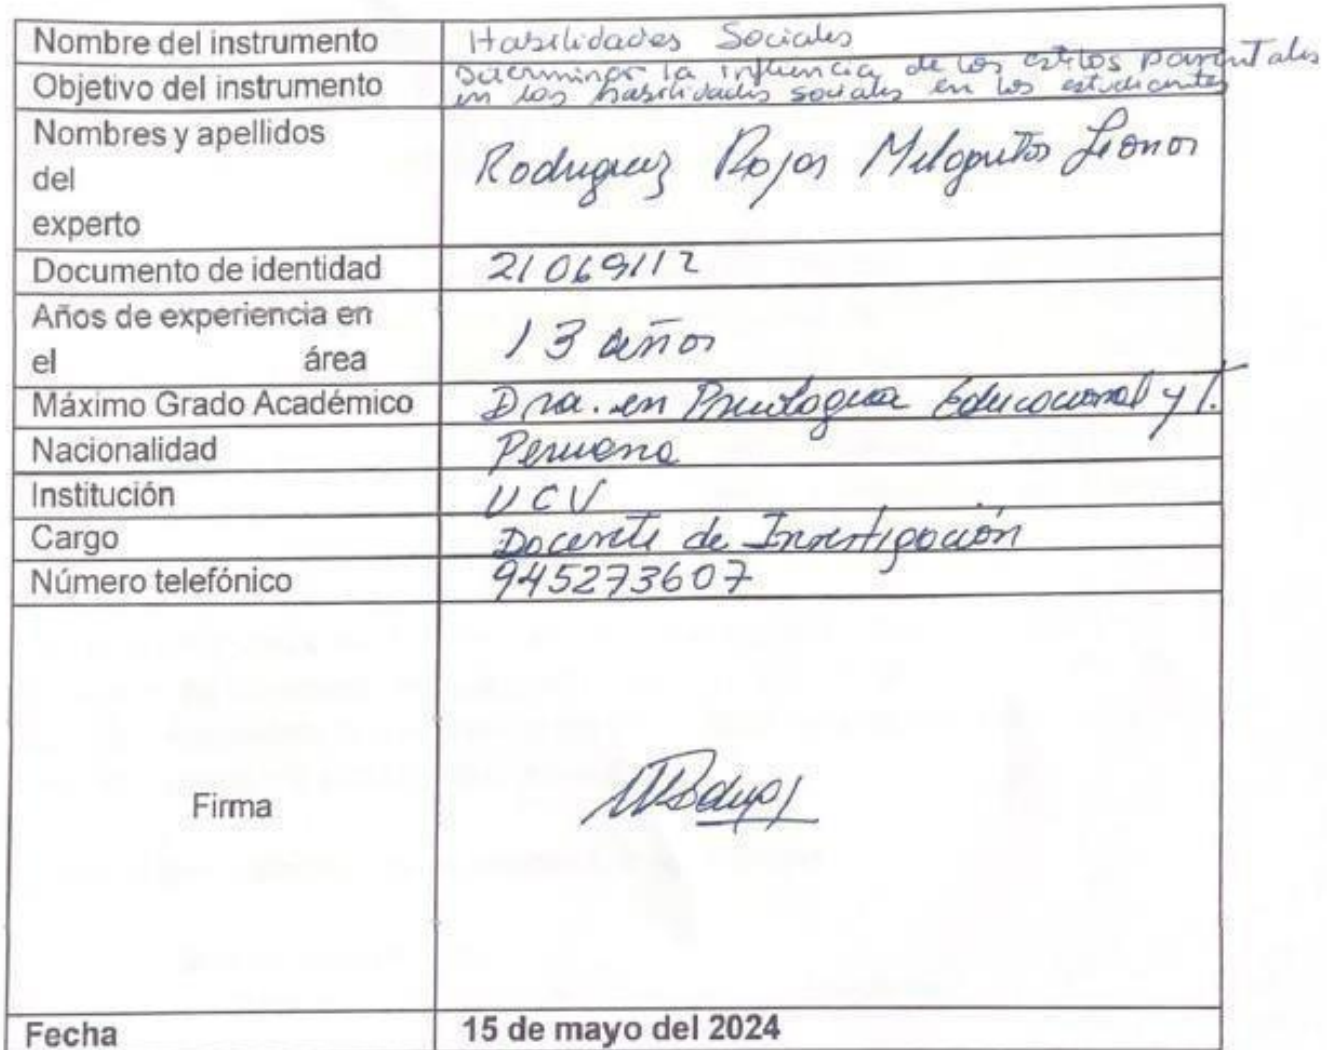 Nombre del instrumento Habilidades Sociales
Objetivo del instrumento Determinar la influencia de los estilos parentales
en las habilidades sociales en los estudiantes
Nombres y apellidos
del
experto
Rodriguez Rojas Milagritos Leonor
Documento de identidad 21069112
Años de experiencia en
el área
13 años
Máximo Grado Académico Dra. en Psicologia Educacional y T.
Nacionalidad Peruana
Institución UCV
Cargo Docente de Investigación
Número telefónico 945273607
Firma
Fecha 15 de mayo del 2024